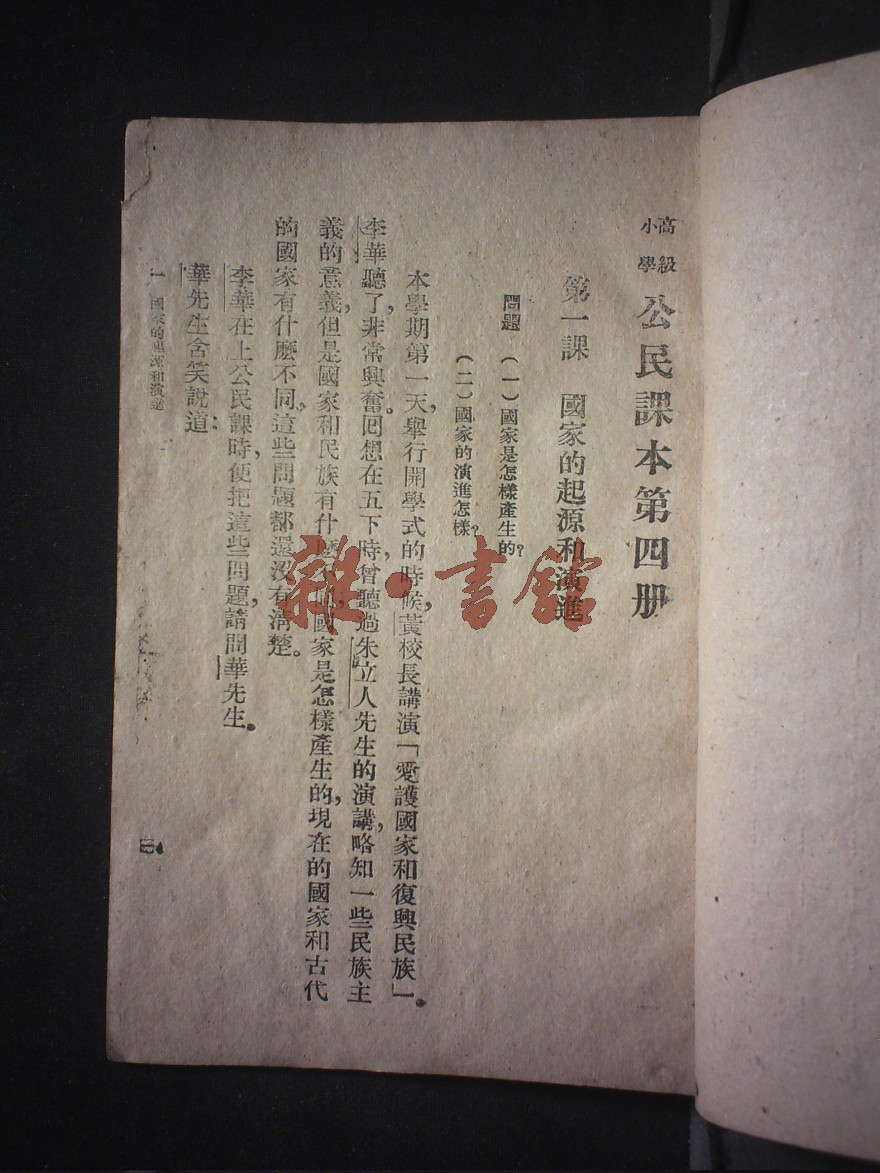 高級小學 公民課本第四册
第一課 國家的起源和演進
問題 (一)國家是怎樣產生的?
(二)國家的演進怎樣?
本學期第一天,舉行開學式的時候,黃校長講演「愛護國家和復興民族」。
李華聽了,非常興奮。回想在五下時,曾聽過朱立人先生的演講,略知一些民族主
義的意義,但是國家和民族有什麼國家是怎樣產生的,現在的國家和古代
的國家有什麼不同,這些問題都還沒有清楚。
李華在上公民課時,便把這些問題,請問華先生。
華先生含笑說道:
一 國家的起源和演進
一
雜·書館